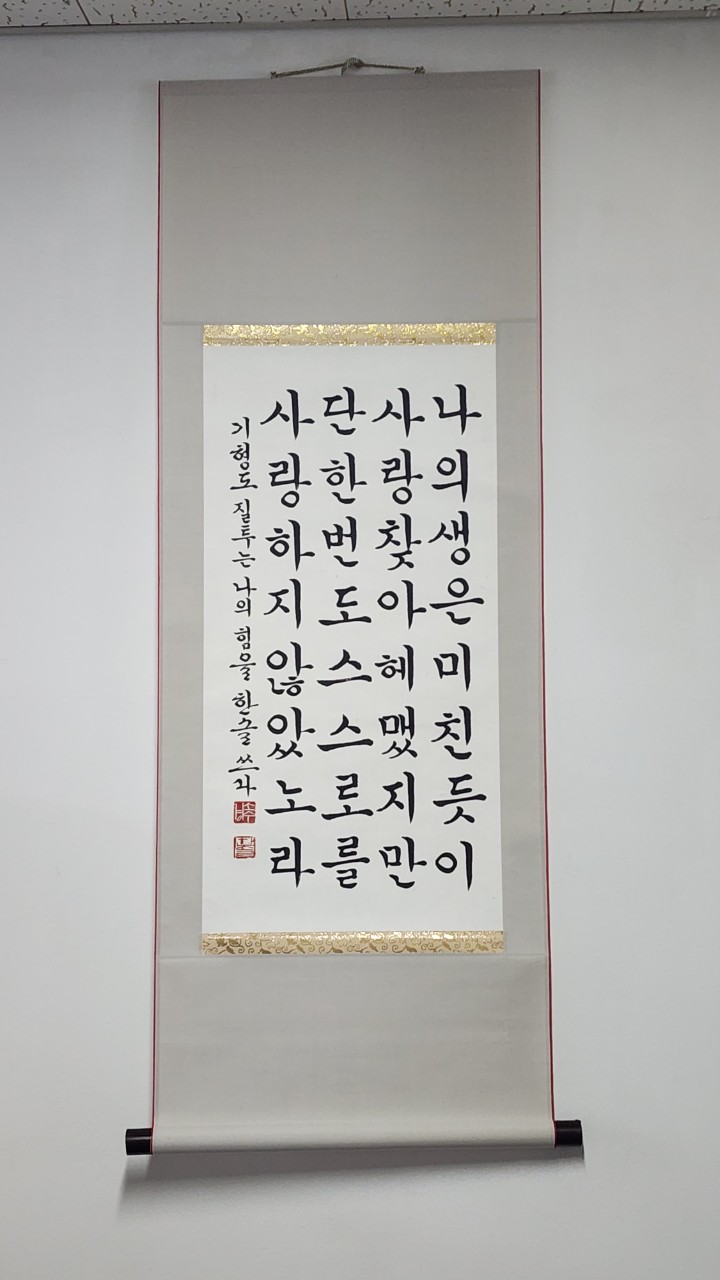 나의생은미친듯이
사랑찾아헤맸지만
단한번도스스로를
사랑하지않았노라
기형도 질투는 나의 힘을 한글 쓰다